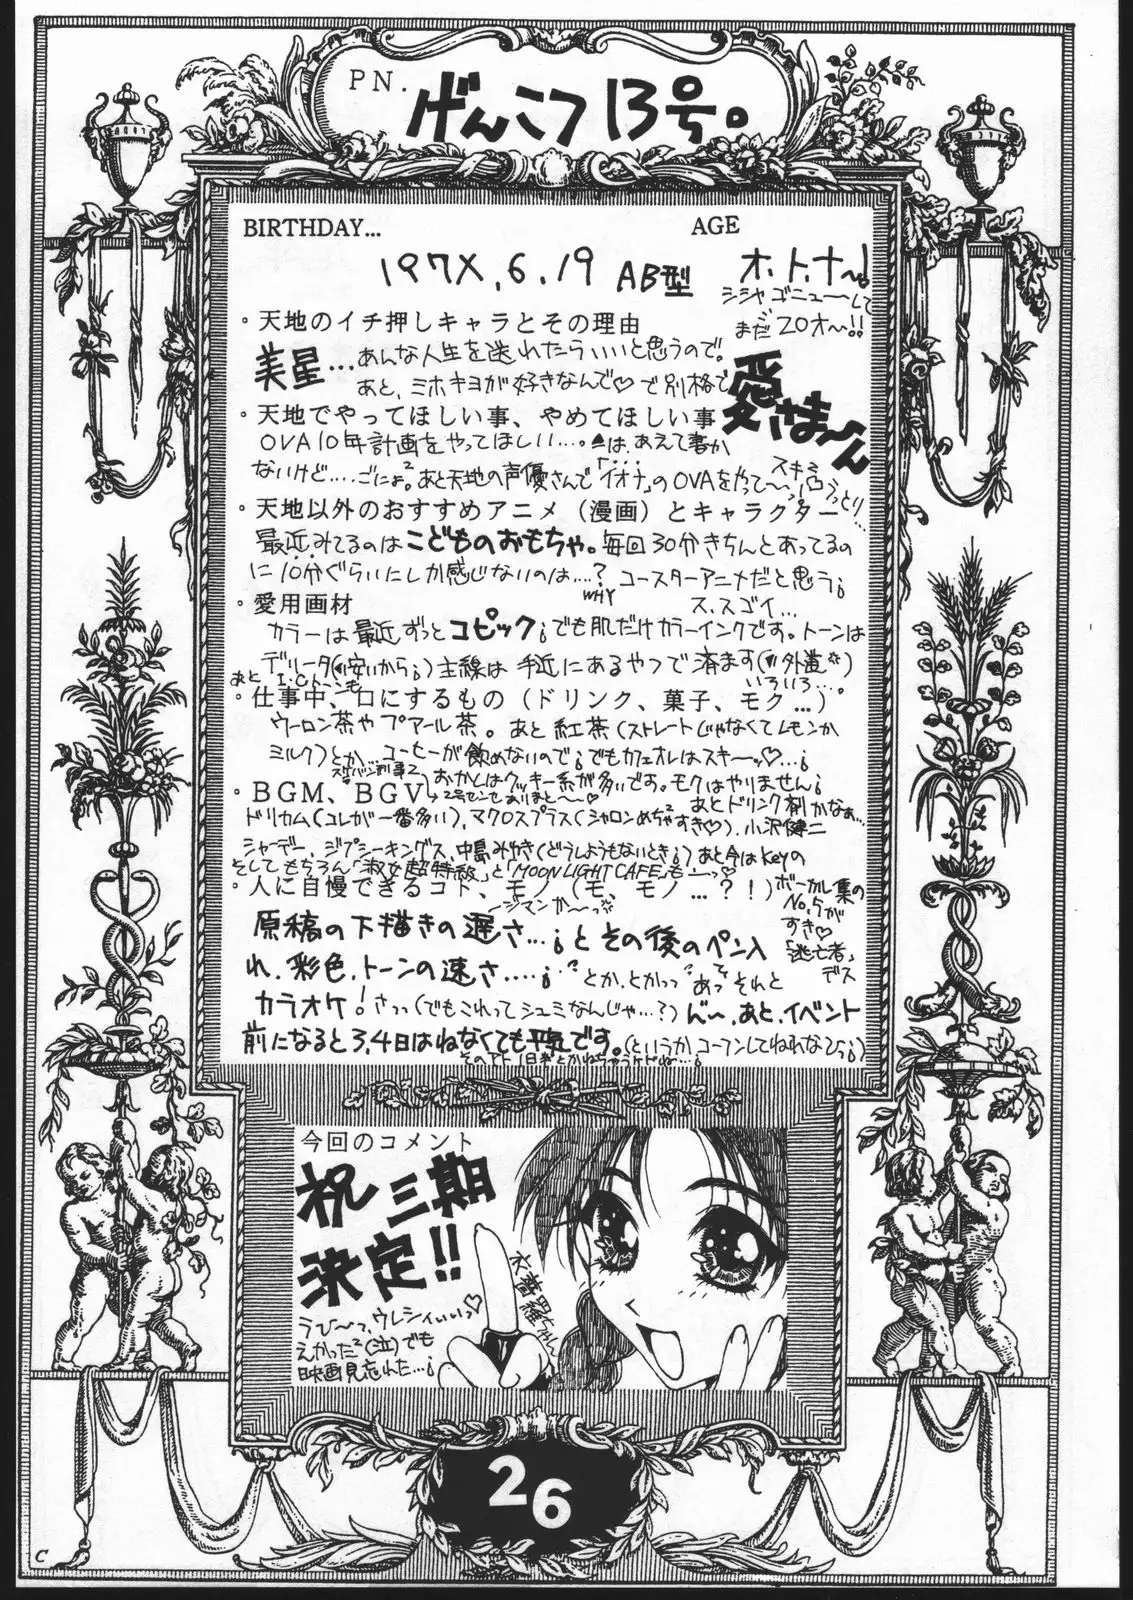 PN.
げんこつ13号。
BIRTHDAY...
AGE
197X.6.19 AB型
オ.ト.ナ〜!
シシャゴニューして
まだ20才〜!!
・天地のイチ押しキャラとその理由
美星…あんな人生を送れたらいいと思うので。
あと、ミホキヨが好きなんで♡で別格で
愛さま〜ん
・天地でやってほしい事、やめてほしい事
OVA10年計画をやってほしい…。▲は、あえて書か
ないけど…。ごにょ²。あと天地の声優さんで「イオナ」のOVAをやって〜っ
・天地以外のおすすめアニメ（漫画）とキャラクター
最近みてるのはこどものおもちゃ。毎回30分きちんとあってるの
に10分ぐらいにしか感じないのは…？ コースターアニメだと思う。
WHY
ス、スゴイ…
・愛用画材
カラーは最近ずっとコピック。でも肌だけカラーインクです。トーンは
デリータ(安いから。)主線は手近にあるやつで済ます(外道)
あとI.Cトーンも
いろいろ…。
・仕事中、口にするもの（ドリンク、菓子、モク…）
ウーロン茶やプアール茶。あと紅茶(ストレートじゃなくてレモンか
ミルク)とか…コーヒーが飲めないので。でもカフェオレはスキーッ♡…。
おかしはクッキー系が多いです。モクはやりません。
・BGM、BGV
あとドリンク剤かなぁ…
ドリカム(コレが一番多い)、マクロスプラス(シャロンめちゃすき♡)、小沢健二
シャーデー、ジプシーキングス、中島みゆき(どうしようもないとき。)あと今はkeyの
そしてもちろん「淑女超特級」と「MOONLIGHT CAFE」も━っ♡
ボーカル集の
No.5が
すき♡
「逃亡者」
デス
・人に自慢できるコト、モノ（モ、モノ…？！）
ジマンか〜っ
原稿の下描きの遅さ…。とその後のペン入
れ、彩色、トーンの速さ…。とか、とかっっ あっ それと
カラオケ！さっっ(でもこれってシュミなんじゃ…？)ん〜、あと、イベント
前になると3,4日はねなくても平気です。(というかコーフンしてねれない。)
そのアト1日半とかねちゃうケドね…。
今回のコメント
祝三期
決定!!
うひ〜っ、ウレシィいいっ♡
えかった²(泣)でも
映画見忘れた…。
26
C